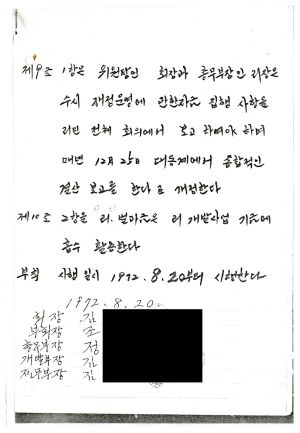 제9조 1항은 위원장인 회장과 총무부장인 리장은
수시 재정운영에 관한 집행 사항을
리민 전체 회의에서 보고 하여야 하며
매년 12月 25日 대동계에서 종합적인
결산 보고를 한다로 개정한다
제10조 2항을 리. 리 개발사업 기금에
흡수 활용한다
부칙 시행 일시 1972. 8. 20부터 시행한다
1972. 8. 20
회장 김
부회장 조
총무부장 정
개발부장 김
재무부장 김